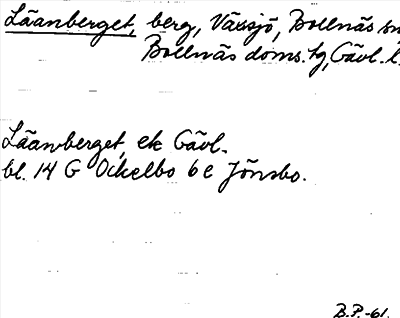 Låanberget, berg, Växsjö, Bollnäs sn
Bollnäs doms. tg, Gävl. l.
Låanberget, ek Gävl.
bl. 14 G Ockelbo 6 e Jönsbo.
B.P.-61.